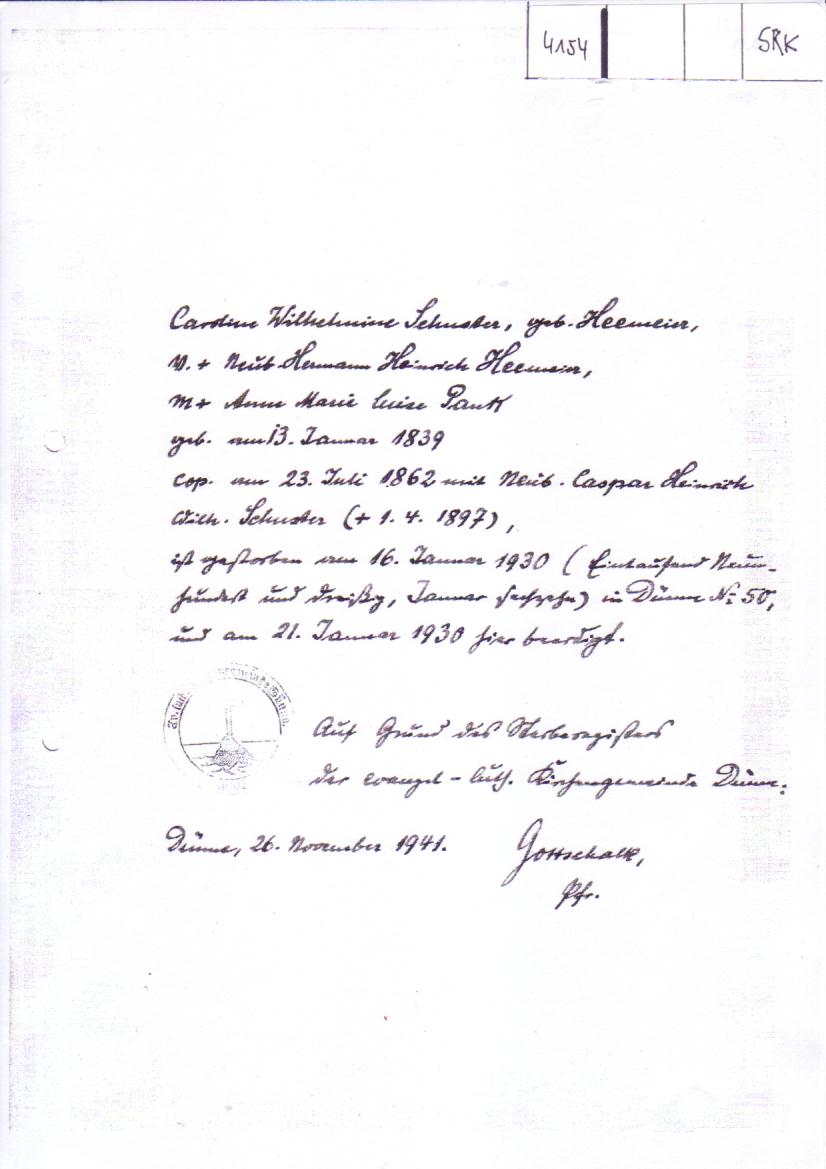 4154 SRK
Caroline Wilhelmine Schuster, geb. Heemeier,
V. + Neub. Hermann Heinrich Heemeier,
M + Anne Marie Luise Pank
geb. am 13. Januar 1839
cop. am 23. Juli 1862 mit Neub. Caspar Heinrich
Wilh. Schuster (+ 1. 4. 1897),
ist gestorben am 16. Januar 1930 (Eintausend Neun-
hundert und dreißig, Januar sechzehn) in Dünne N: 50,
und am 21. Januar 1930 hier beerdigt.
Auf Grund des Sterberegisters
der evangel - luth. Kirchengemeinde Dünne.
Dünne, 26. November 1941.
Gottschalk,
Pfr.